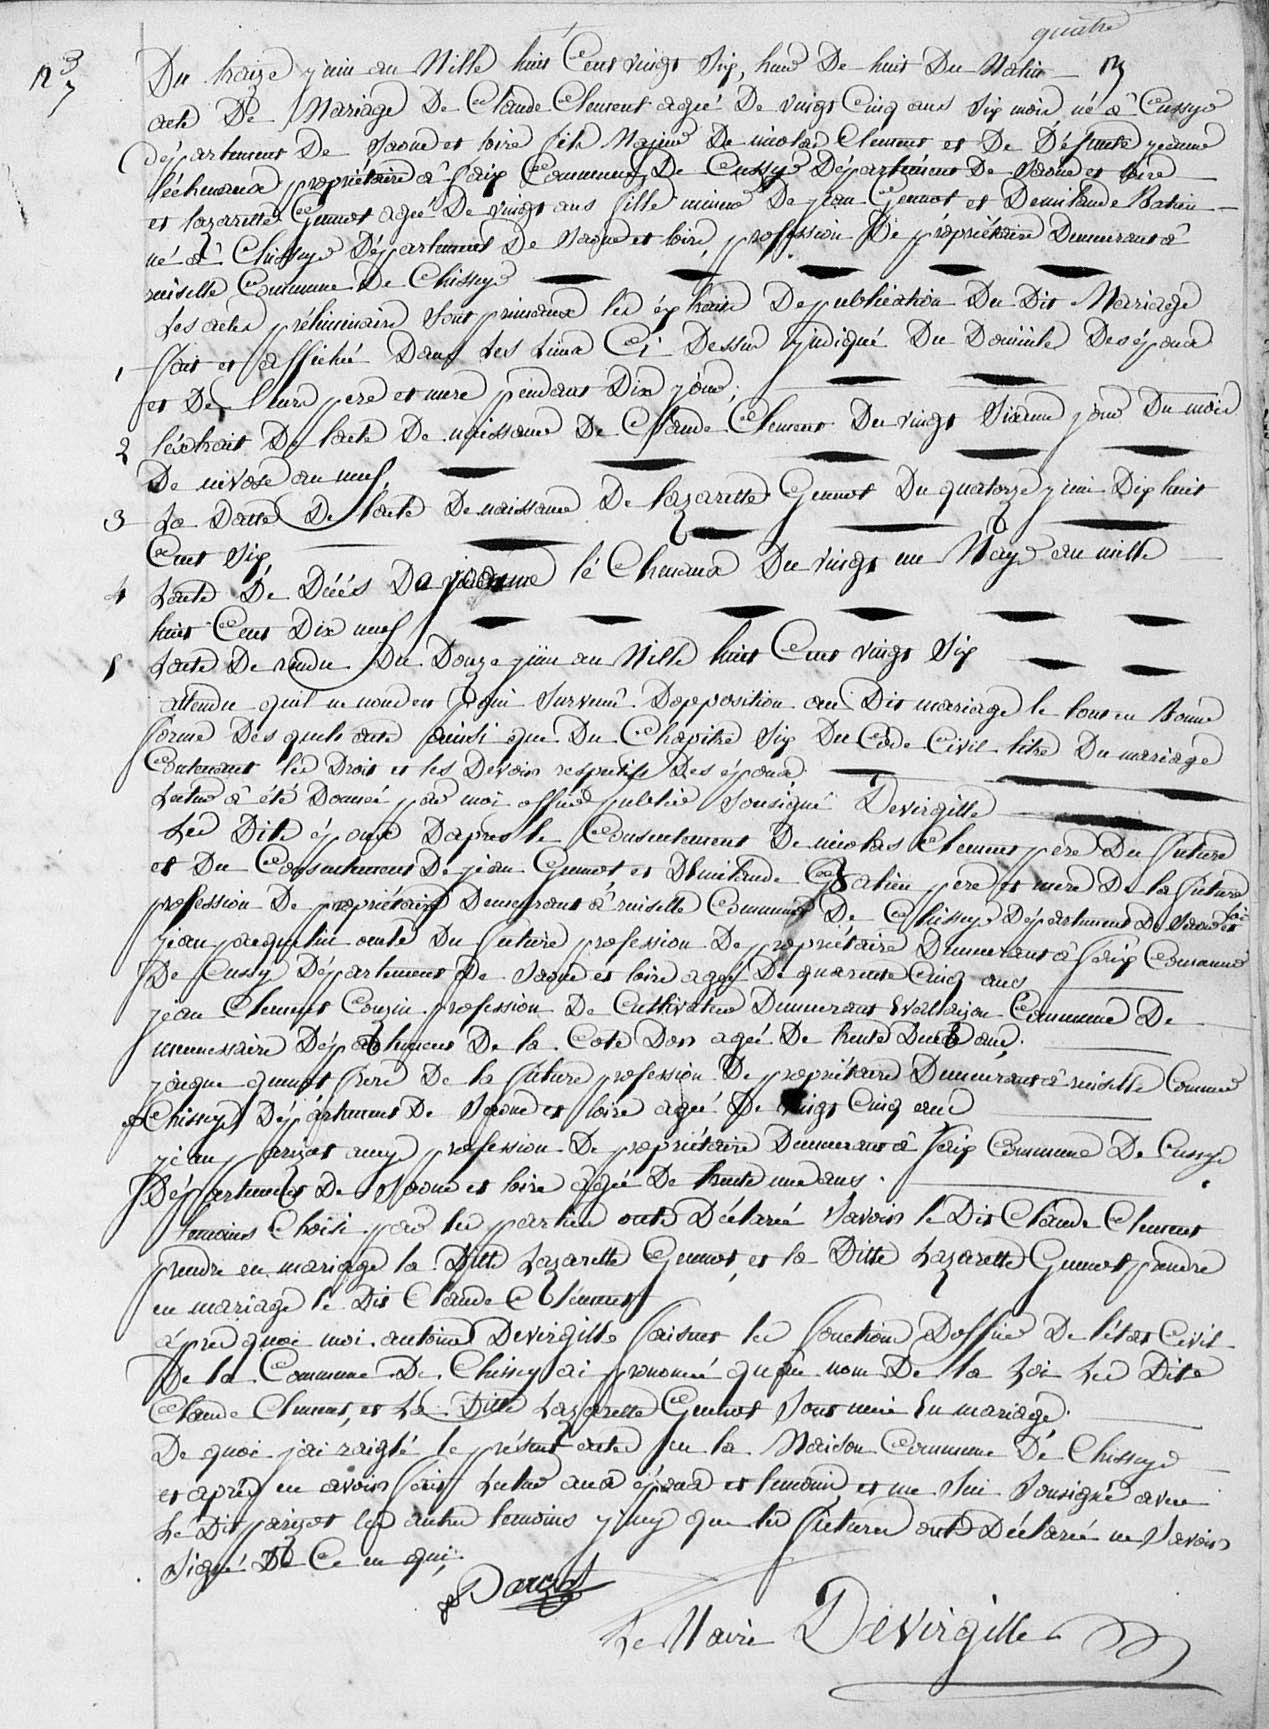 quatre
n 3
7
Du traize juin an Mille huit Cent vingt Six, heure De huit Du Matin
acte De Mariage De Claude Clement agée De vingt Cinq ans Six mois né a Cussye
département De Saone et loire fils Majeur De nicolas Clement et De Défunte jeanne
léchenaux propriétaire a faix Commune De Cussye Département De Saone et loire
et lazarette Gennot agee De vingt ans fille mineure De jean Gennot et Demilande
né a Chissye Département De Saone et loire, profession De propriétaire Demeurant a
ruiselle Commune De Chissye
Les actes préliminaire Sont les extrait De publication Du Dit Mariage
1 fait et affiché Dans les lieux Ci Dessus jndiqué Du Domicile Des époux
et De leurs pere et mere pendant Dix jour,
2 léxtrait De lacte De naissance De Claude Clement Du vingt Sixieme jour Du mois
De nivose an neuf
3 La Datte De lacte De naissance De lazarette Gennot Du quatorze juin Dix huit
Cent Six,
4 Lacte De Décés De jeanne lé Chenaux Du vingt un Maye an mille
huit Cent Dix neuf
5 Lacte De Du Douze juin an Mille huit Cent vingt Six
attendu quil ne nous est point Survenu Dopposition au Dit mariage le tout en Bonne
forme Des quels acte ainsi que Du Chapitre Six Du Code Civil titre Du mariage
Contenant les Droit et les Devoirs respectifs Des époux
Lecture a été Donnée par moi officier publie Sousigné Devirgille
Les Dits époux Dapres le Consentement De nicolas Clement pere Du futur
et Du Consentement De jean Gennot et Demilande pere et mere De la future
profession De propriétaire Demeurant a ruiselle Commune De Chissye Département De Saone et loire
jean jacquelin oncle Du future profession De propriétaire Demeurant a faix Commune
De Cussy Département De Saone et loire agée De quarente Cinq ans
jean Clement Couzin profession De Cultivateur Demeurant Commune De
menessaire Département De la Cote Dor agée De trente Deux ans,
jacque gennot frere De la future profession De propriétaire Demeurant a ruiselle Commune
Chissye Département De Saone et loire agée De vingt Cinq ans
jean parizot amye profession De propriétaire Demeurant a faix Commune De Cussye
Département De Saone et loire agée De trente une ans.
temoins Choisi par les parties onts Déclarée Savoir le Dit Claude Clement
prendre en mariage la Ditte Lazarette Gennot, et la Ditte Lazarette Gennot prendre
en mariage le Dit Claude Clement
apres quoi moi antoine Devirgille faisant les fonction Dofficier De létat Civil
De la Commune De Chissey ai prononcé quau nom De la Loi Les Dits
Claude Clement, et La Ditte Lazarette Gennot Sont unie En mariage.
De quoi jai raiglé le présent acte en la Maison Commune De Chissye
et aprés en avoir fait Lecture aux époux et temoins et me Sui Sousigné avec
Le Dit parizot les autre temoins que les futures onts Déclarée ne Savoir
Signé De Ce en qui,
Parizot
Le Maire Devirgille